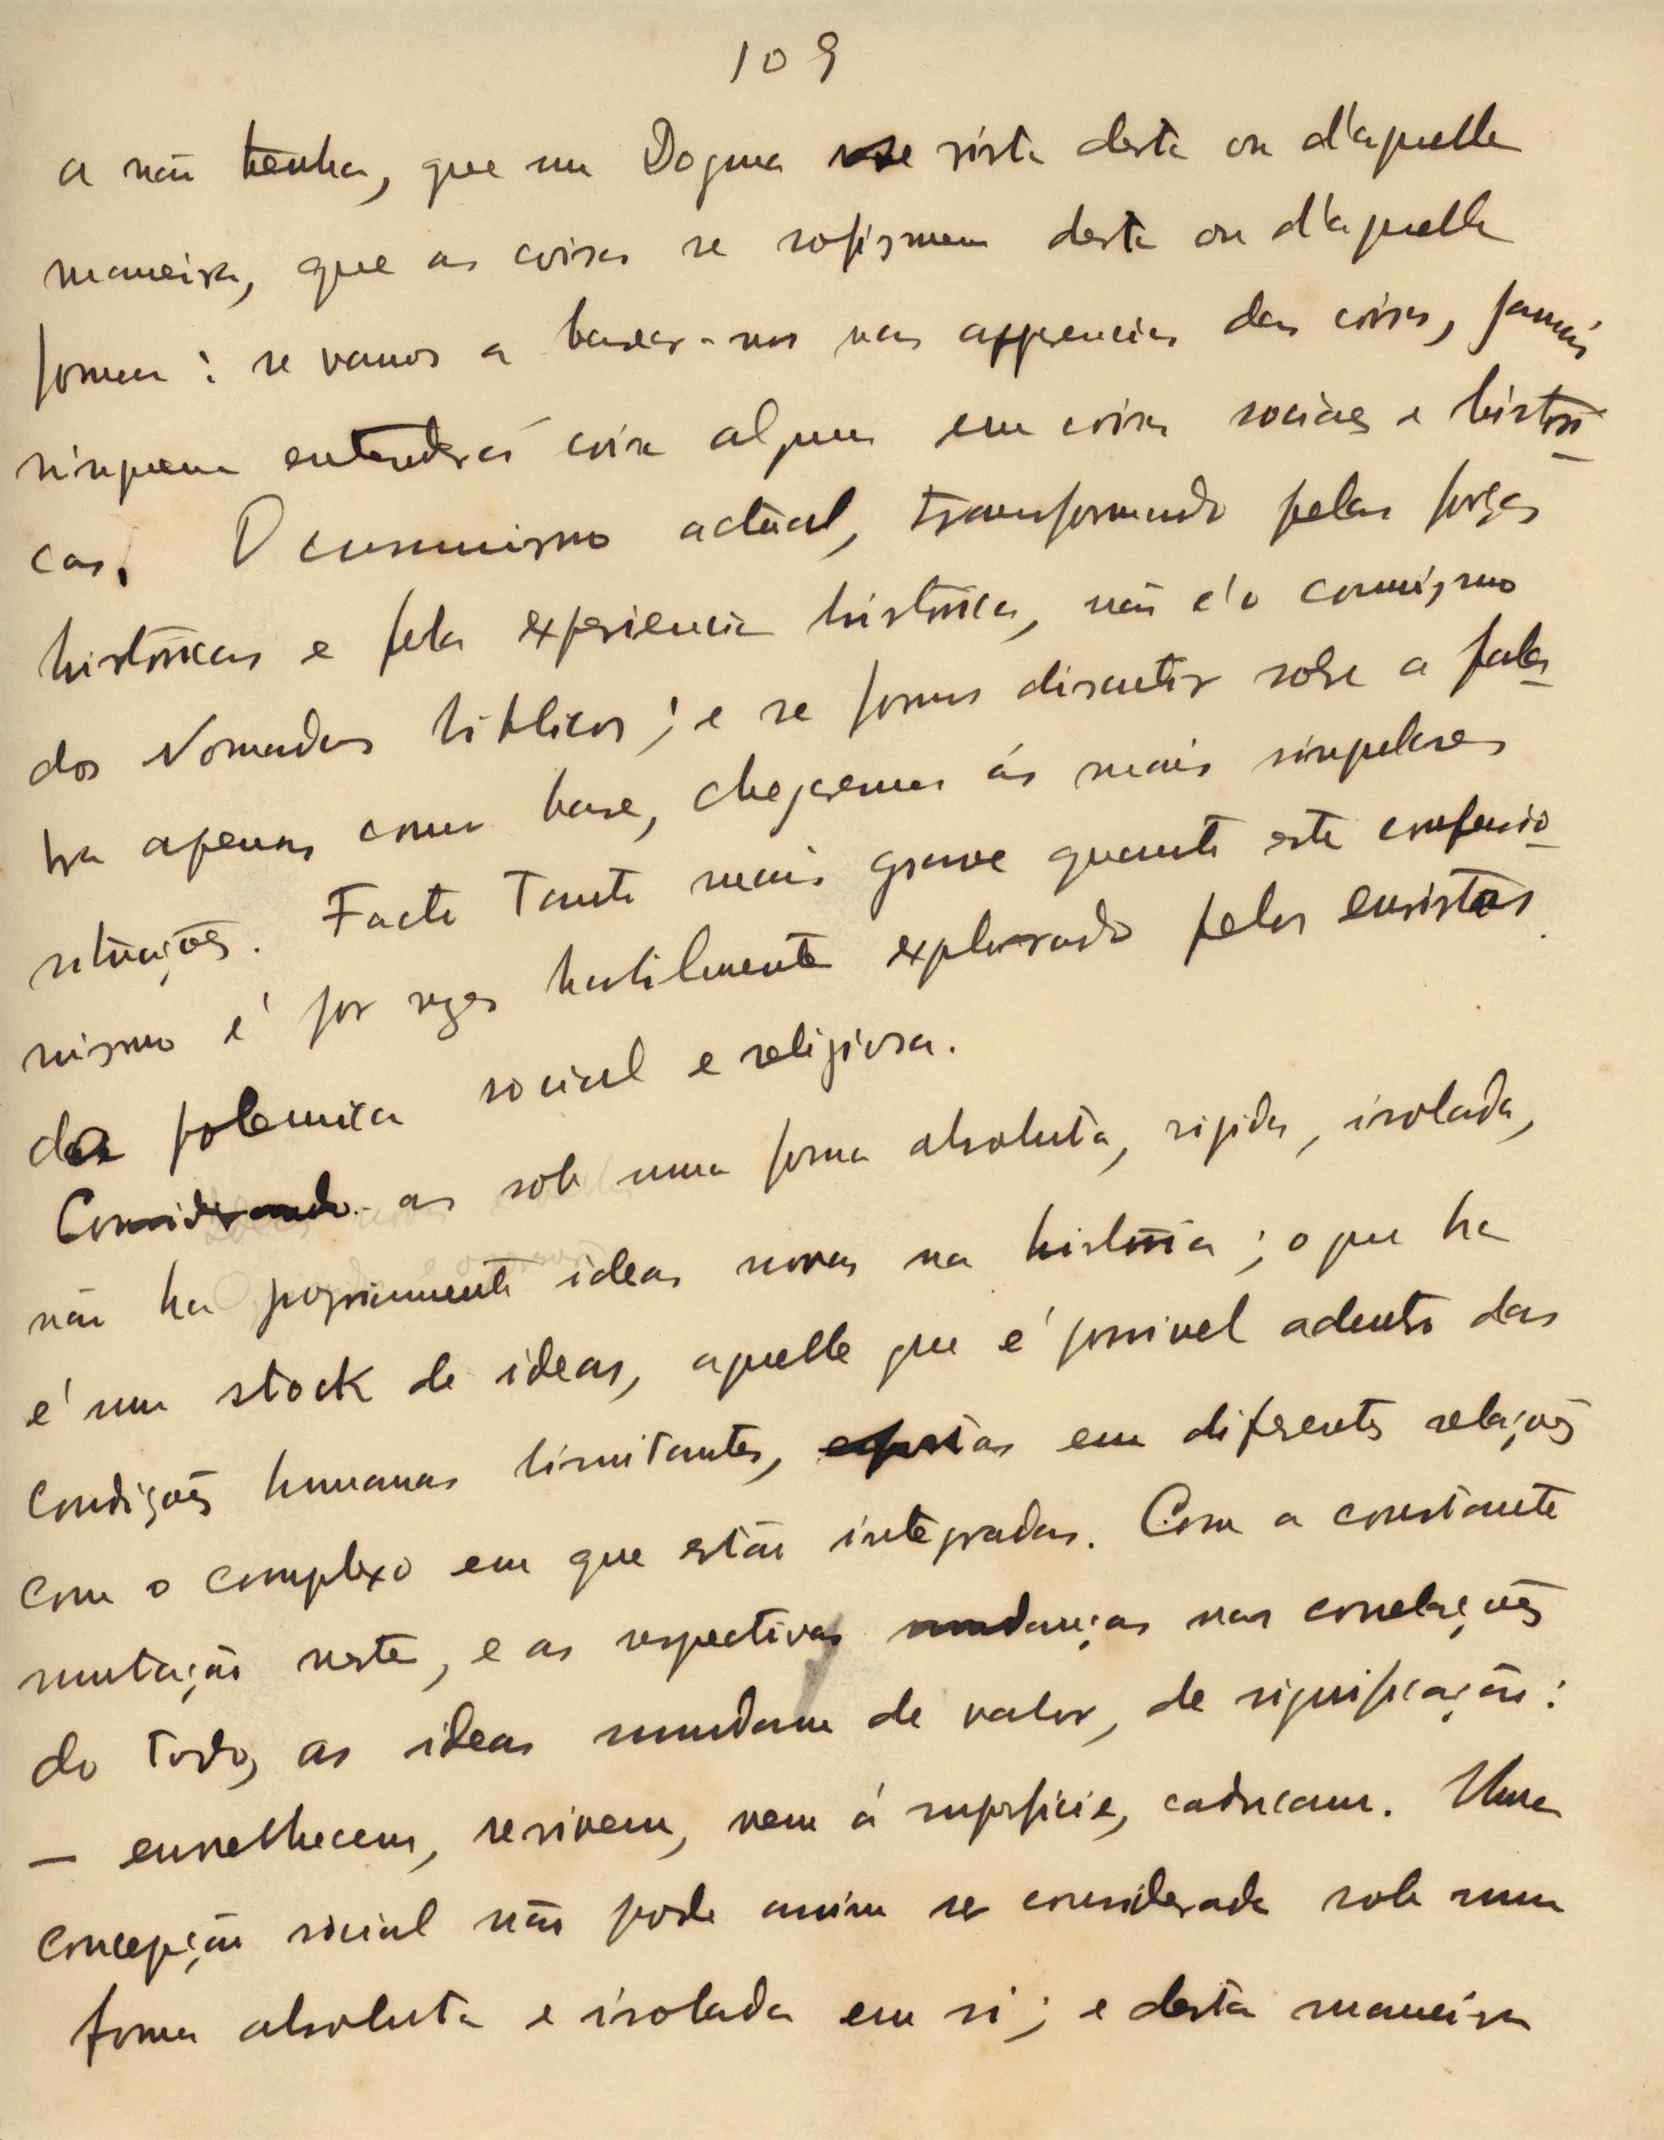 109
a não tenha, que um Dogma se vista desta ou d'aquella
maneira, que as coisas se sofismem desta ou d'aquella
forma: se vamos a basear-nos nas apparencias das coisas, jamais
ninguem entenderá coisa alguma em coisas sociaes e histori-
cas. O comunismo actual, transformado pelas forças
historicas e pela experiencia historica, não é o comunismo
dos Nomadas biblicos; e se formos discutir sobre a pala-
vra apenas como base, chegaremos ás mais singulares
situações. Facto tanto mais grave quanto este confusio-
nismo é por vezes habilmente explorado pelos
da polemica social e religiosa.
Considerando-as sob uma forma absoluta, rigida, isolada,
não ha propriamente ideas novas na historia; o que ha
é um stock de ideas, aquelle que é possivel adentro das
condições humanas limitantes, em diferentes relações
com o complexo em que estão integradas. Com a constante
mutação neste, e as respectivas mudanças nas correlações
do todo, as ideas mudam de valor, de significação:
— envelhecem, revivem, vem á superficie, caducam. Uma
concepção social não pode assim ser considerada sob uma
forma absoluta e isolada em si; e desta maneira